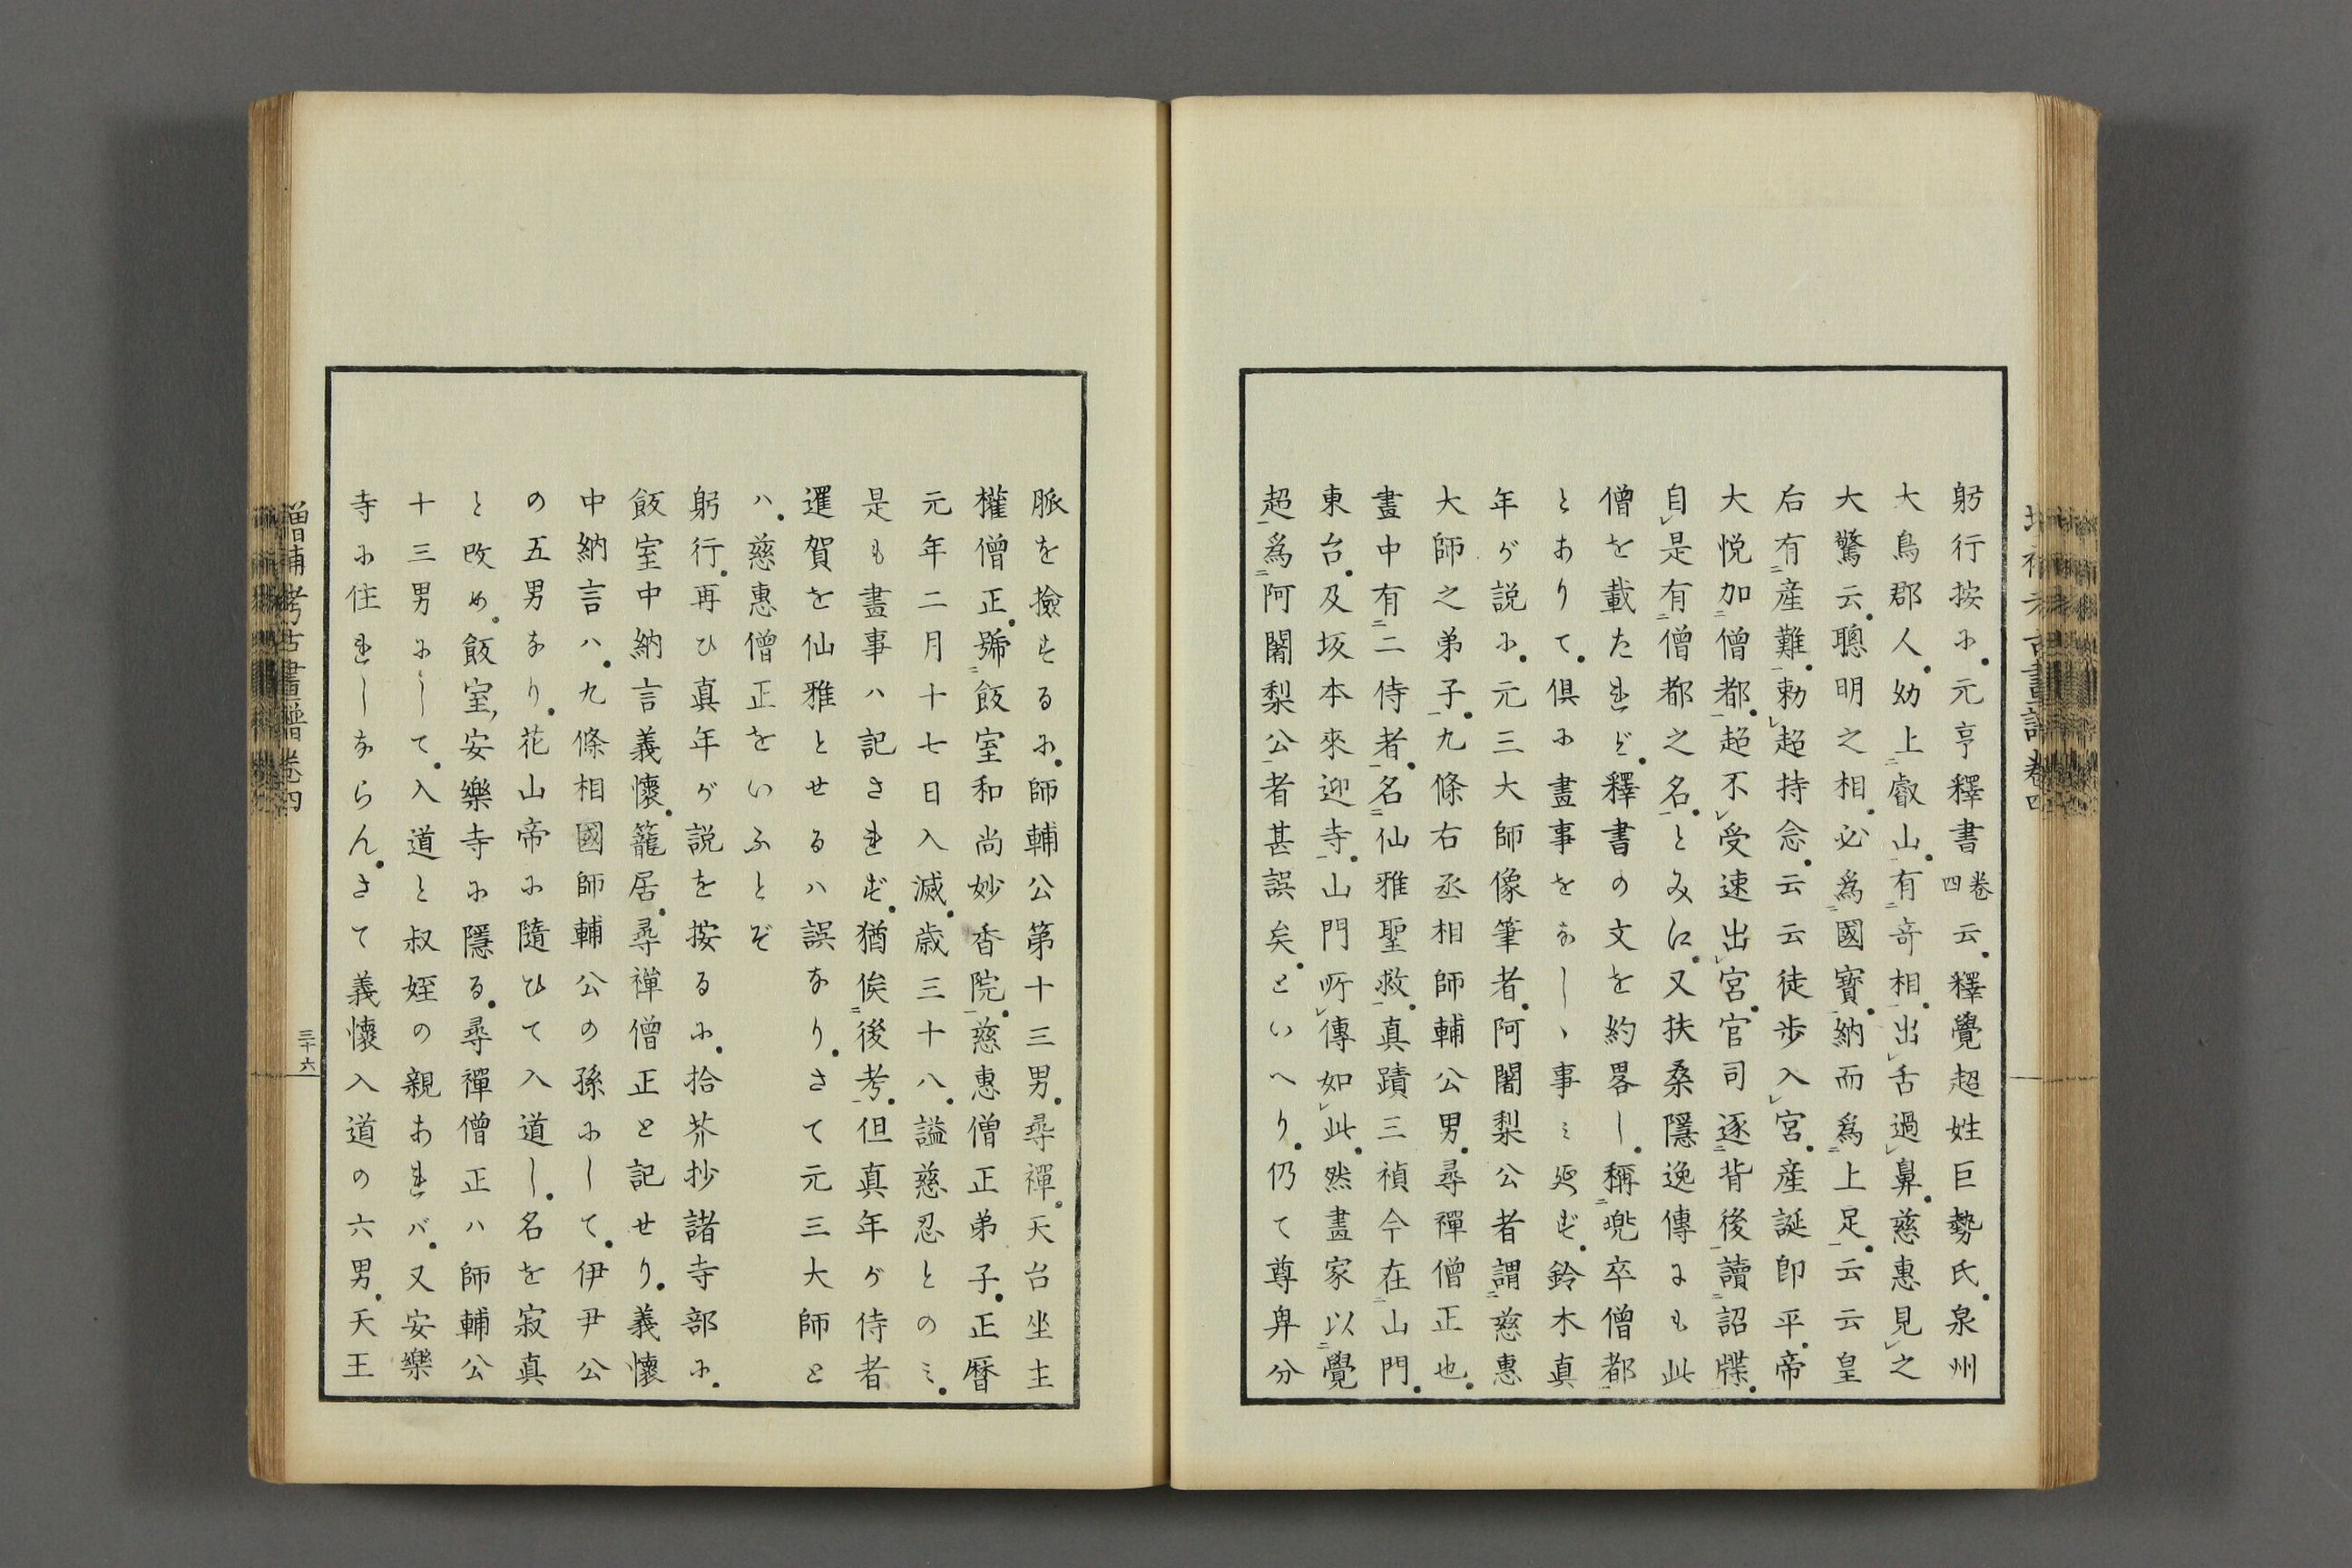 躬行按に元亨釋書卷四云釋覺超姓巨勢氏泉州
大鳥郡人幼上二叡山一有二奇相一出レ舌過レ鼻慈惠見レ之
大驚云聰明之相必爲二國寶一納而爲二上足一云云皇
后有二産難一勅レ超持念云云徒歩入レ宮産誕卽平帝
大悅加二僧都一超不レ受速出レ宮官司逐二背後一讀二詔牒一
自レ是有二僧都之名一とみえ又扶桑隱逸傳にも此
僧を載たれど釋書の文を約畧し稱二兜卒僧都一
とありて倶に畫事をなしゝ事ミ延ず鈴木真
年が說に元三大師像筆者阿闍梨公者謂二慈惠
大師之弟子一九條右丞相師輔公男尋禪僧正也
畫中有二二侍者一名二仙雅聖救一真蹟三禎今在二山門
東台及坂本來迎寺一山門所レ傳如レ此然畫家以二覺
超一爲二阿闍梨公一者甚誤矣といへり仍て尊卑分
脈を撿するに師輔公第十三男尋禪天台坐主
權僧正號二飯室和尚妙香院一慈惠僧正弟子正曆
元年二月十七日入滅歲三十八謚慈忍とのミ
是も畫事ハ記されず猶俟二後考一但真年が侍者
暹賀を仙雅とせるハ誤なりさて元三大師と
ハ慈惠僧正をいふとぞ
躬行再ひ真年が說を按るに拾芥抄諸寺部に
飯室中納言義懷籠居尋禪僧正と記せり義懷
中納言ハ九條相國師輔公の孫にして伊尹公
の五男なり花山帝に隨ひて入道し名を寂真
と改め飯室安樂寺に隱る尋禪僧正ハ師輔公
十三男にして入道と叔姪の親あれバ又安樂
寺に住れしならんさて義懷入道の六男天王
增補考古畫譜卷四
三十六